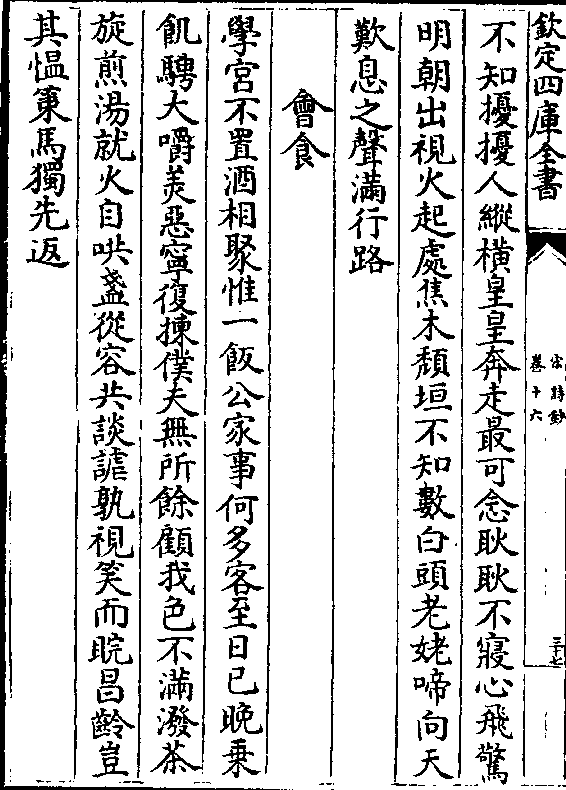 欽定四庫全書
宋詩鈔
卷十六
三十七
不知擾擾人縱橫皇皇奔走最可念耿耿不寢心飛驚
明朝出視火起處焦木頹垣不知數白頭老姥啼向天
歎息之聲滿行路
會食
學宮不置酒相聚惟一飯公家事何多客至日已晚乗
飢騁大嚼美惡寧復揀僕夫無所餘顧我色不滿潑茶
旋煎湯就火自哄盞從容共談謔孰視笑而睆昌齡豈
其愠策馬獨先返